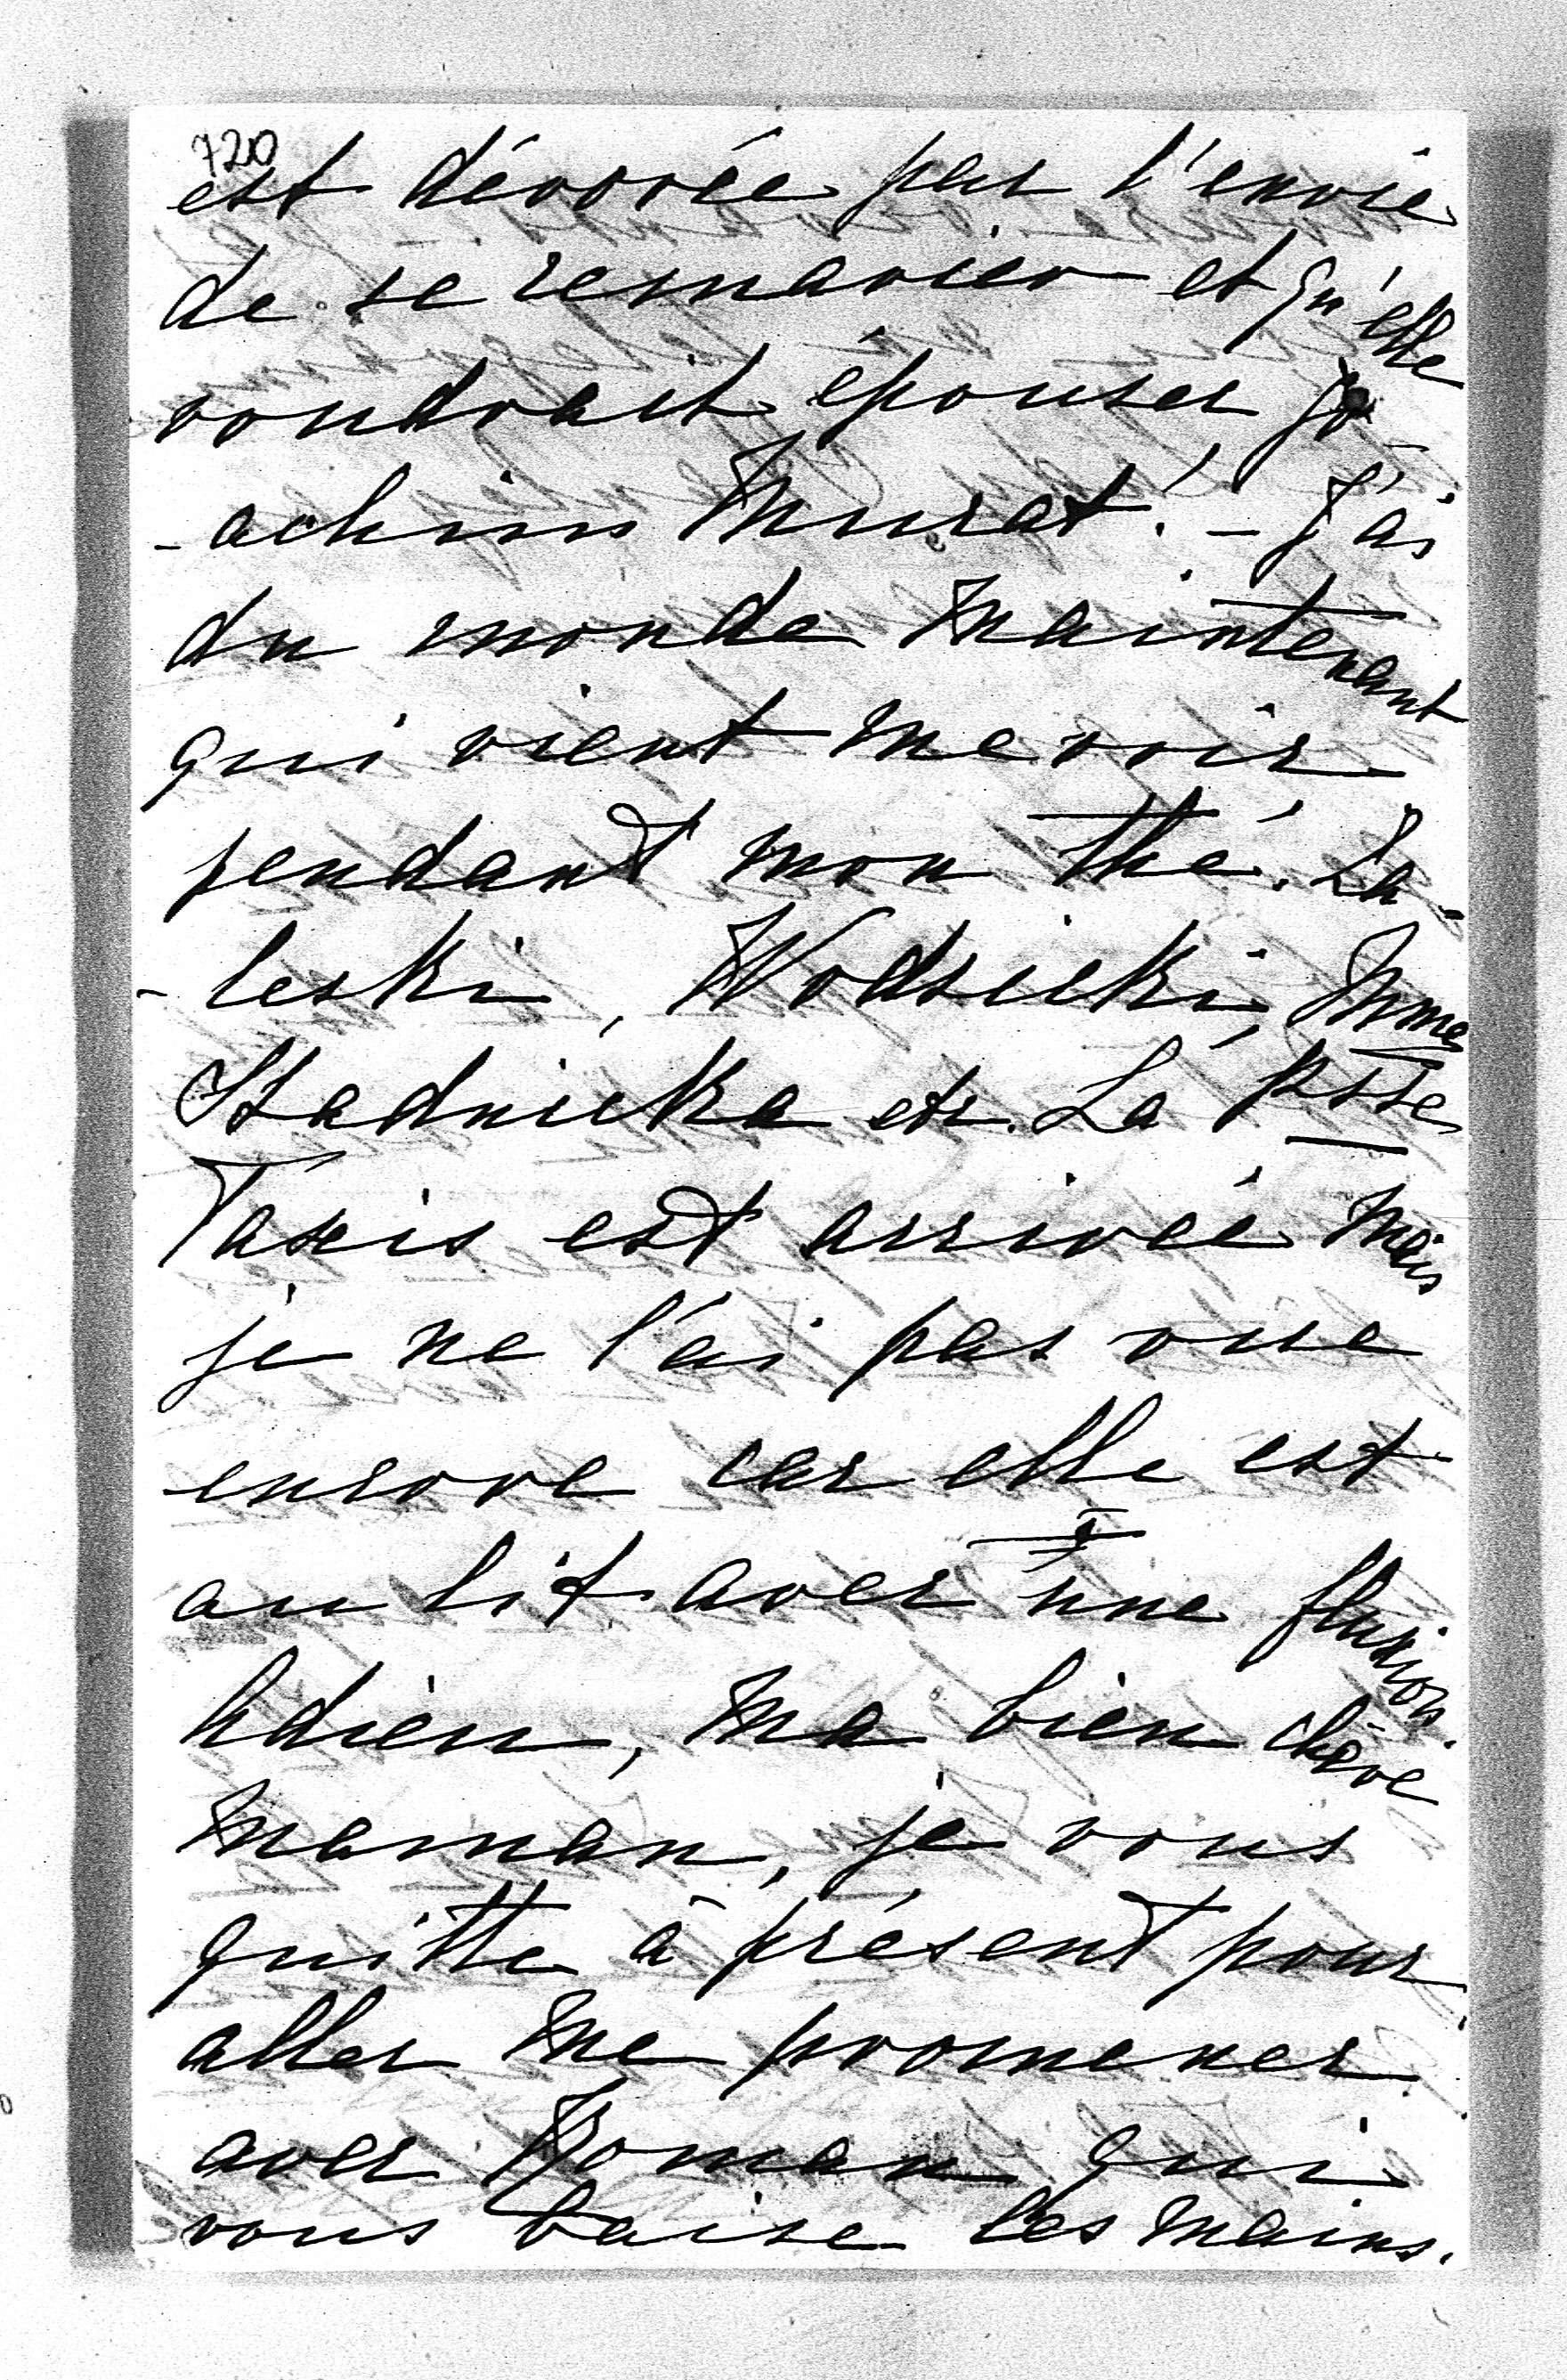 720
est dévorée par l'envie
de se remarier et qu'elle
voudrait épouser Jo-
-achim Murat! - J'ai
du monde maintenant
qui vient me voir
pendant mon thé. Za-
-leski, Wodsicki, Mme
Stadnicka etc. La Psse
Taxis est arrivée mais
je ne l'ai pas vue
encore car elle est
au lit avec une fluxion.
Adieu, ma bien chère
maman, je vous
quitte à présent pour
aller me promener
avec Roman qui
vous baise les mains.